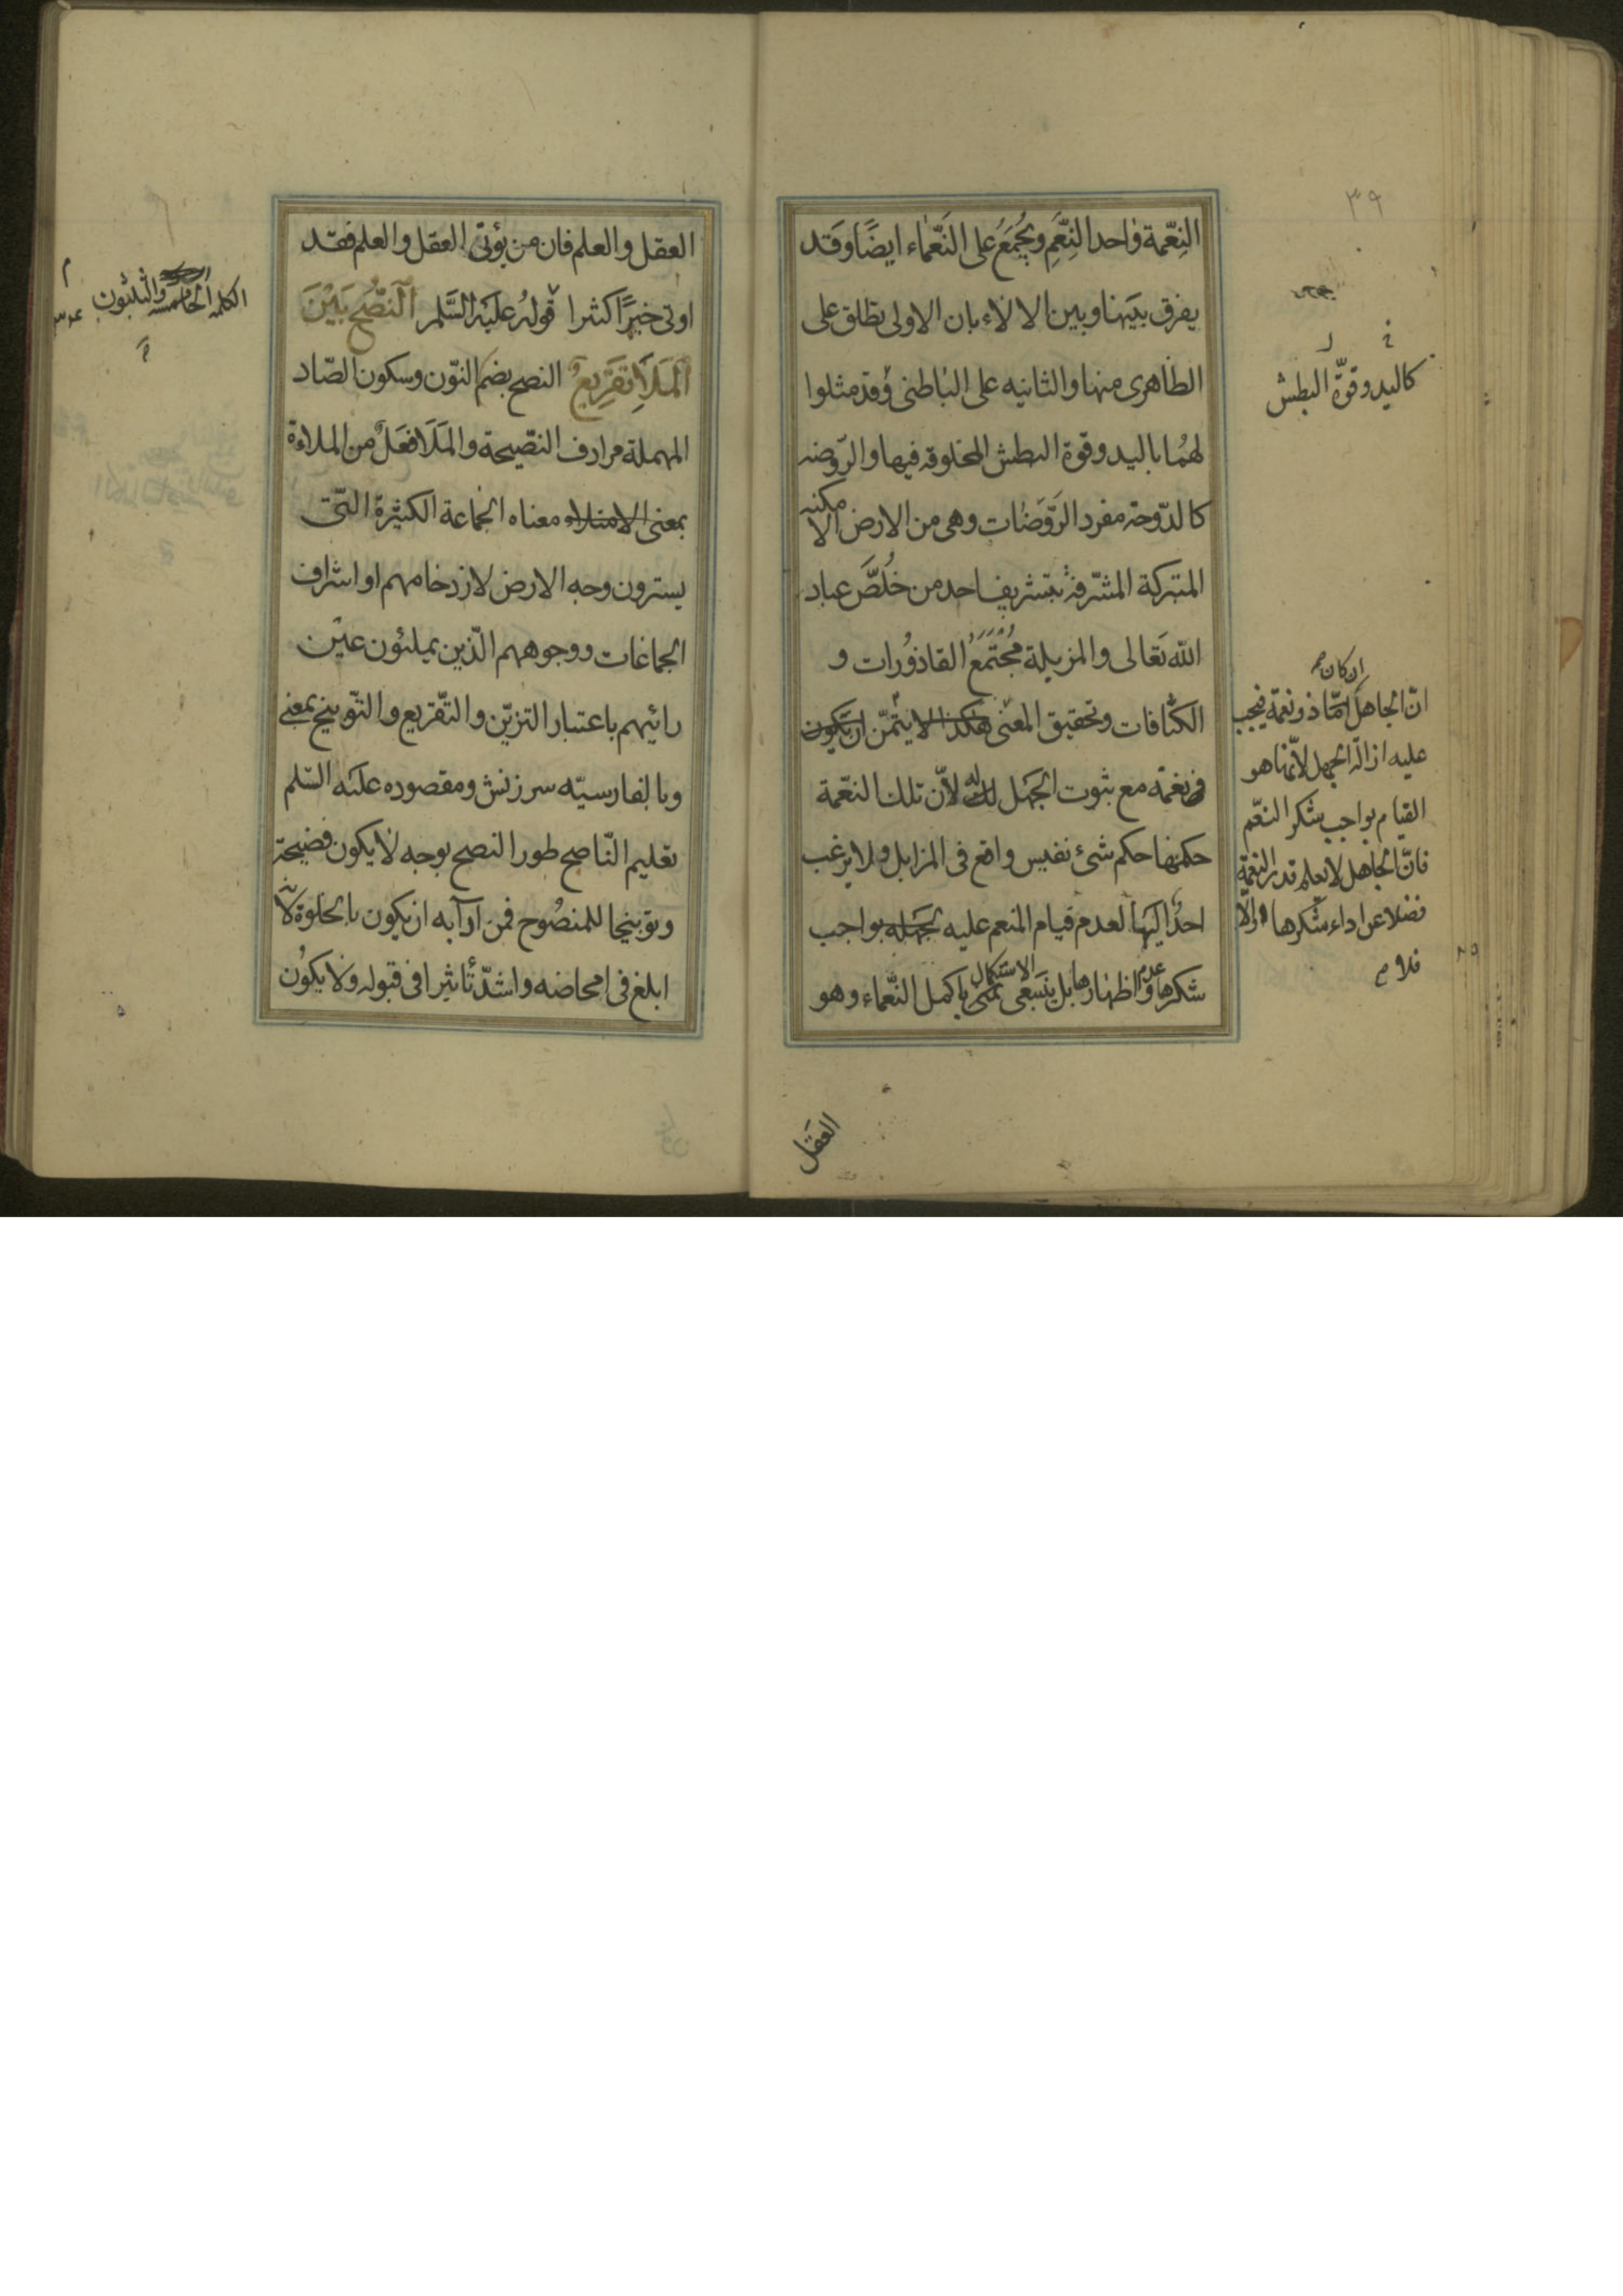 ٣٩
النِعّمة واحد النِّعَمِ وتجُمَعُ على النَعّماء ايضًا وقَد
يفرق بينَها وبين الالاء بان الاولى يطلق على
الظاهرى منها والثانيه على الباطنى وقد مثلوا
لهُما باليد وقوة البطش المخلوقه فيها والرّوضه
كالدّوحه مفرد الرَّوَضات وهى من الارض الامكنه
المتبركة المشرّفة بتشريف احد من خُلَّصَ عباد
الله تَعالى والمزبلة مُجْتَمَعُ القاذوُرات و
الكثافات وتحقيق المعنى هكذا لا يتمنّ ان يكون
نعمة مع ثبوت الجَهل له لأنّ تلك النعّمة
حكمها حكم شئ نفيس واقع فى المزابل ولا يرغب
احدٌ اليَها لعدم قيام المنعم عليه بجَهله بواجب
شكرها وعدم اظهارها بل يَسَعى الاستكمال باكمل النَّعماء وهو
كاليد وقوّة البطش
ان كان
انّ الجاهل ذو نعمة فيجب
عليه ازالة الجهل لأنّها هو
القيام بواجب شكر النعّم
فانّ الجاهل لا يعلم قدر النعمة
فضلا عن اداء شكرها والّا
فلا
العَقل
العقل والعلم فان من يؤتى العقل والعلم فقد
اوتى خيرًا كثيرا قولُه عليَه السَّلم اَلنصُّح بَيْنَ
اَلمَلَاِ تَقَرِيعٌ النصح بضم النوّن وسكون الصّاد
المهملة مرادف النصّيحة والمَلَا فَعَلٌ من الملاءة
بمعنى الامتلاء معناه الجماعة الكثيرة التّى
يسترون وجه الارض لازدخامهم او اشراف
الجماعات ووجوههم الّذين يملئون عيْن
رائيهم باعتبار التزيّن والتقّريع والتوّبيخ بمعنى
وبالفارسيّه سرزنش ومقصوده علَيه السّلم
تعليم النّاصح طور النصح بوجه لا يكون فضيحة
وتوبيخا للمنصُوح فمن آدابه ان يكون بالخلوة لانه
ابلغ فى امحاضه واشدّ تأثيرا فى قبوله ولا يكوُن
الكلمه الخامسه والثلثون